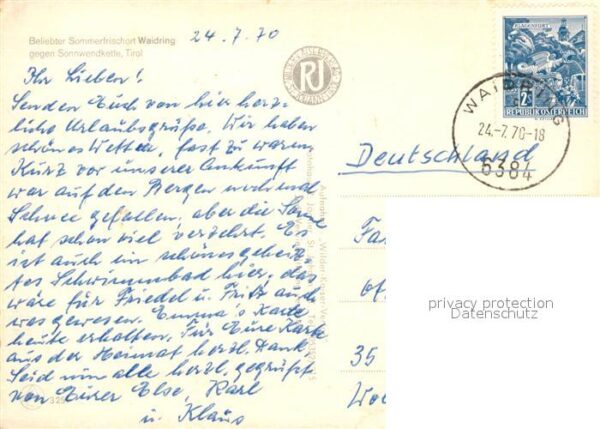 Beliebter Sommerfrischort Waidring
gegen Sonnwendkette, Tirol
24.7.70
Ihr Lieben!
Senden Euch von hier herz-
liche Urlaubsgrüße. Wir haben
schönes Wetter, fast zu warm.
Kurz vor unserer Ankunft
war auf den Bergen nochmal
Schnee gefallen, aber die Sonne
hat schon viel verzehrt. Es
ist auch ein schönes geheiz-
tes Schwimmbad hier, das
wäre für Friedel u. Fritz auch
was gewesen. Emma's Karte
heute erhalten. Für Eure Karte
aus der Heimat herzl. Dank.
Seid nun alle herzl. gegrüßt
von Eurer Else, Karl
u. Klaus
RJ
KLAGENFURT
2S
REPUBLIK ÖSTERREICH
WAIDRING
24.-7.70-18
6384
Deutschland
Fa
privacy protection
Datenschutz
35